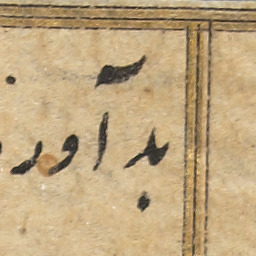 بد آورد